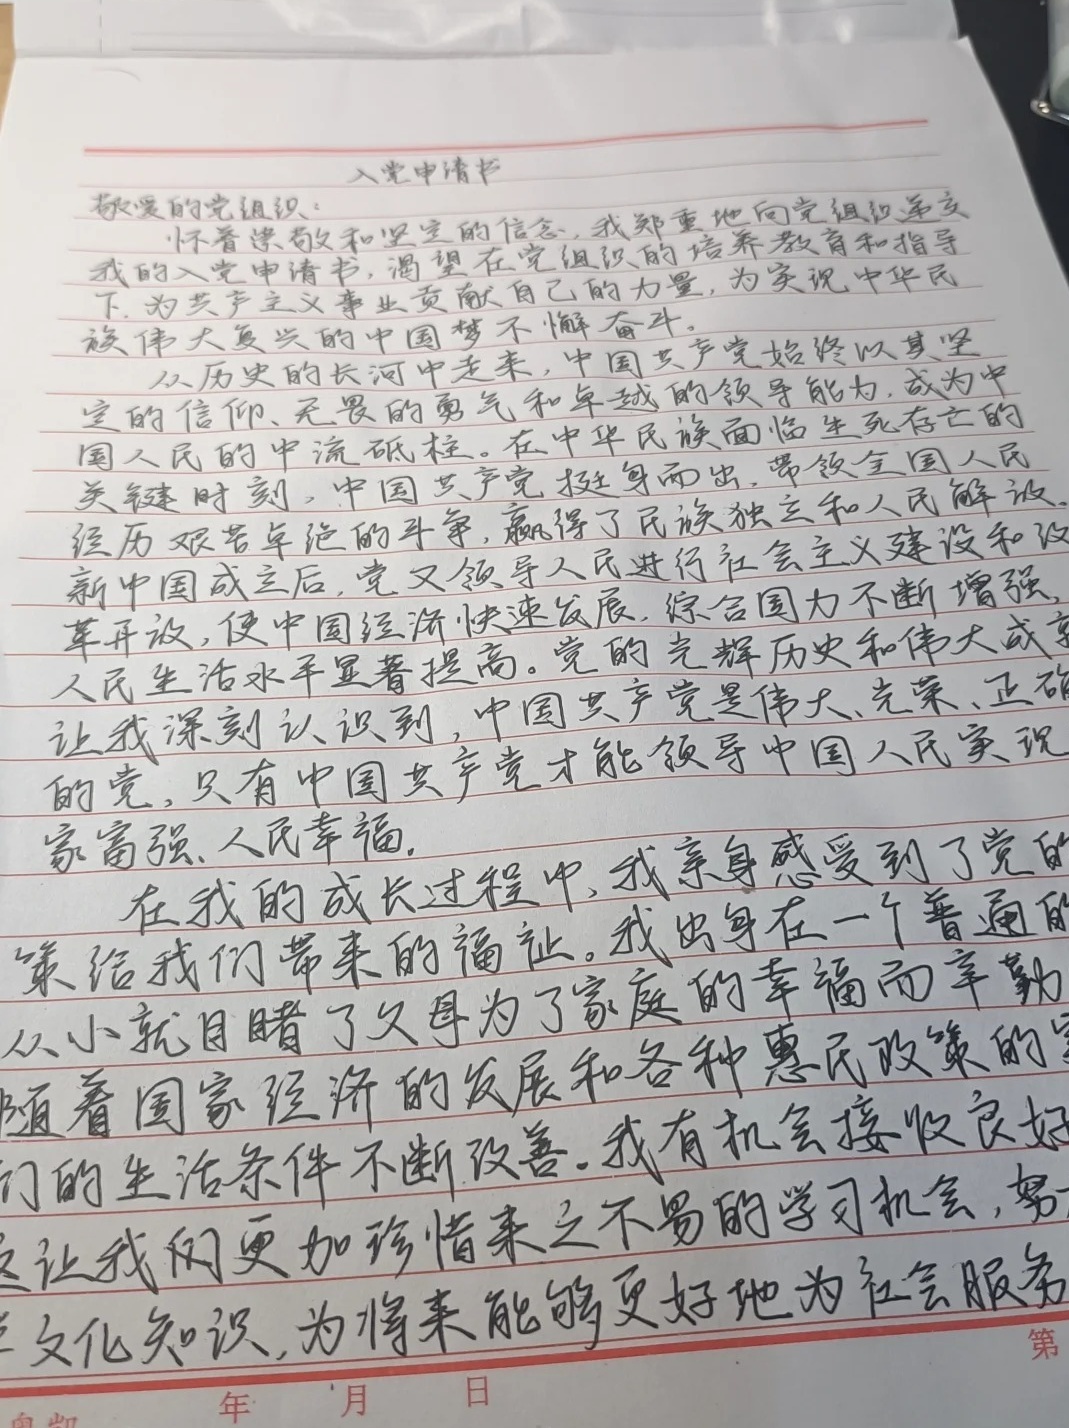 入党申请书
敬爱的党组织：
怀着崇敬和坚定的信念，我郑重地向党组织递交
我的入党申请书，渴望在党组织的培养教育和指导
下，为共产主义事业贡献自己的力量，为实现中华民
族伟大复兴的中国梦不懈奋斗。
从历史的长河中走来，中国共产党始终以其坚
定的信仰、无畏的勇气和卓越的领导能力，成为中
国人民的中流砥柱。在中华民族面临生死存亡的
关键时刻，中国共产党挺身而出，带领全国人民
经历艰苦卓绝的斗争，赢得了民族独立和人民解放。
新中国成立后，党又领导人民进行社会主义建设和改
革开放，使中国经济快速发展，综合国力不断增强，
人民生活水平显著提高。党的光辉历史和伟大成就
让我深刻认识到，中国共产党是伟大、光荣、正确
的党，只有中国共产党才能领导中国人民实现
家富强、人民幸福。
在我的成长过程中，我亲身感受到了党的
策给我们带来的福祉。我出身在一个普通的
从小就目睹了父母为了家庭的幸福而辛勤
随着国家经济的发展和各种惠民政策的
们的生活条件不断改善。我有机会接收良好
这让我们更加珍惜来之不易的学习机会，努
文化知识，为将来能够更好地为社会服务
第
年 月 日